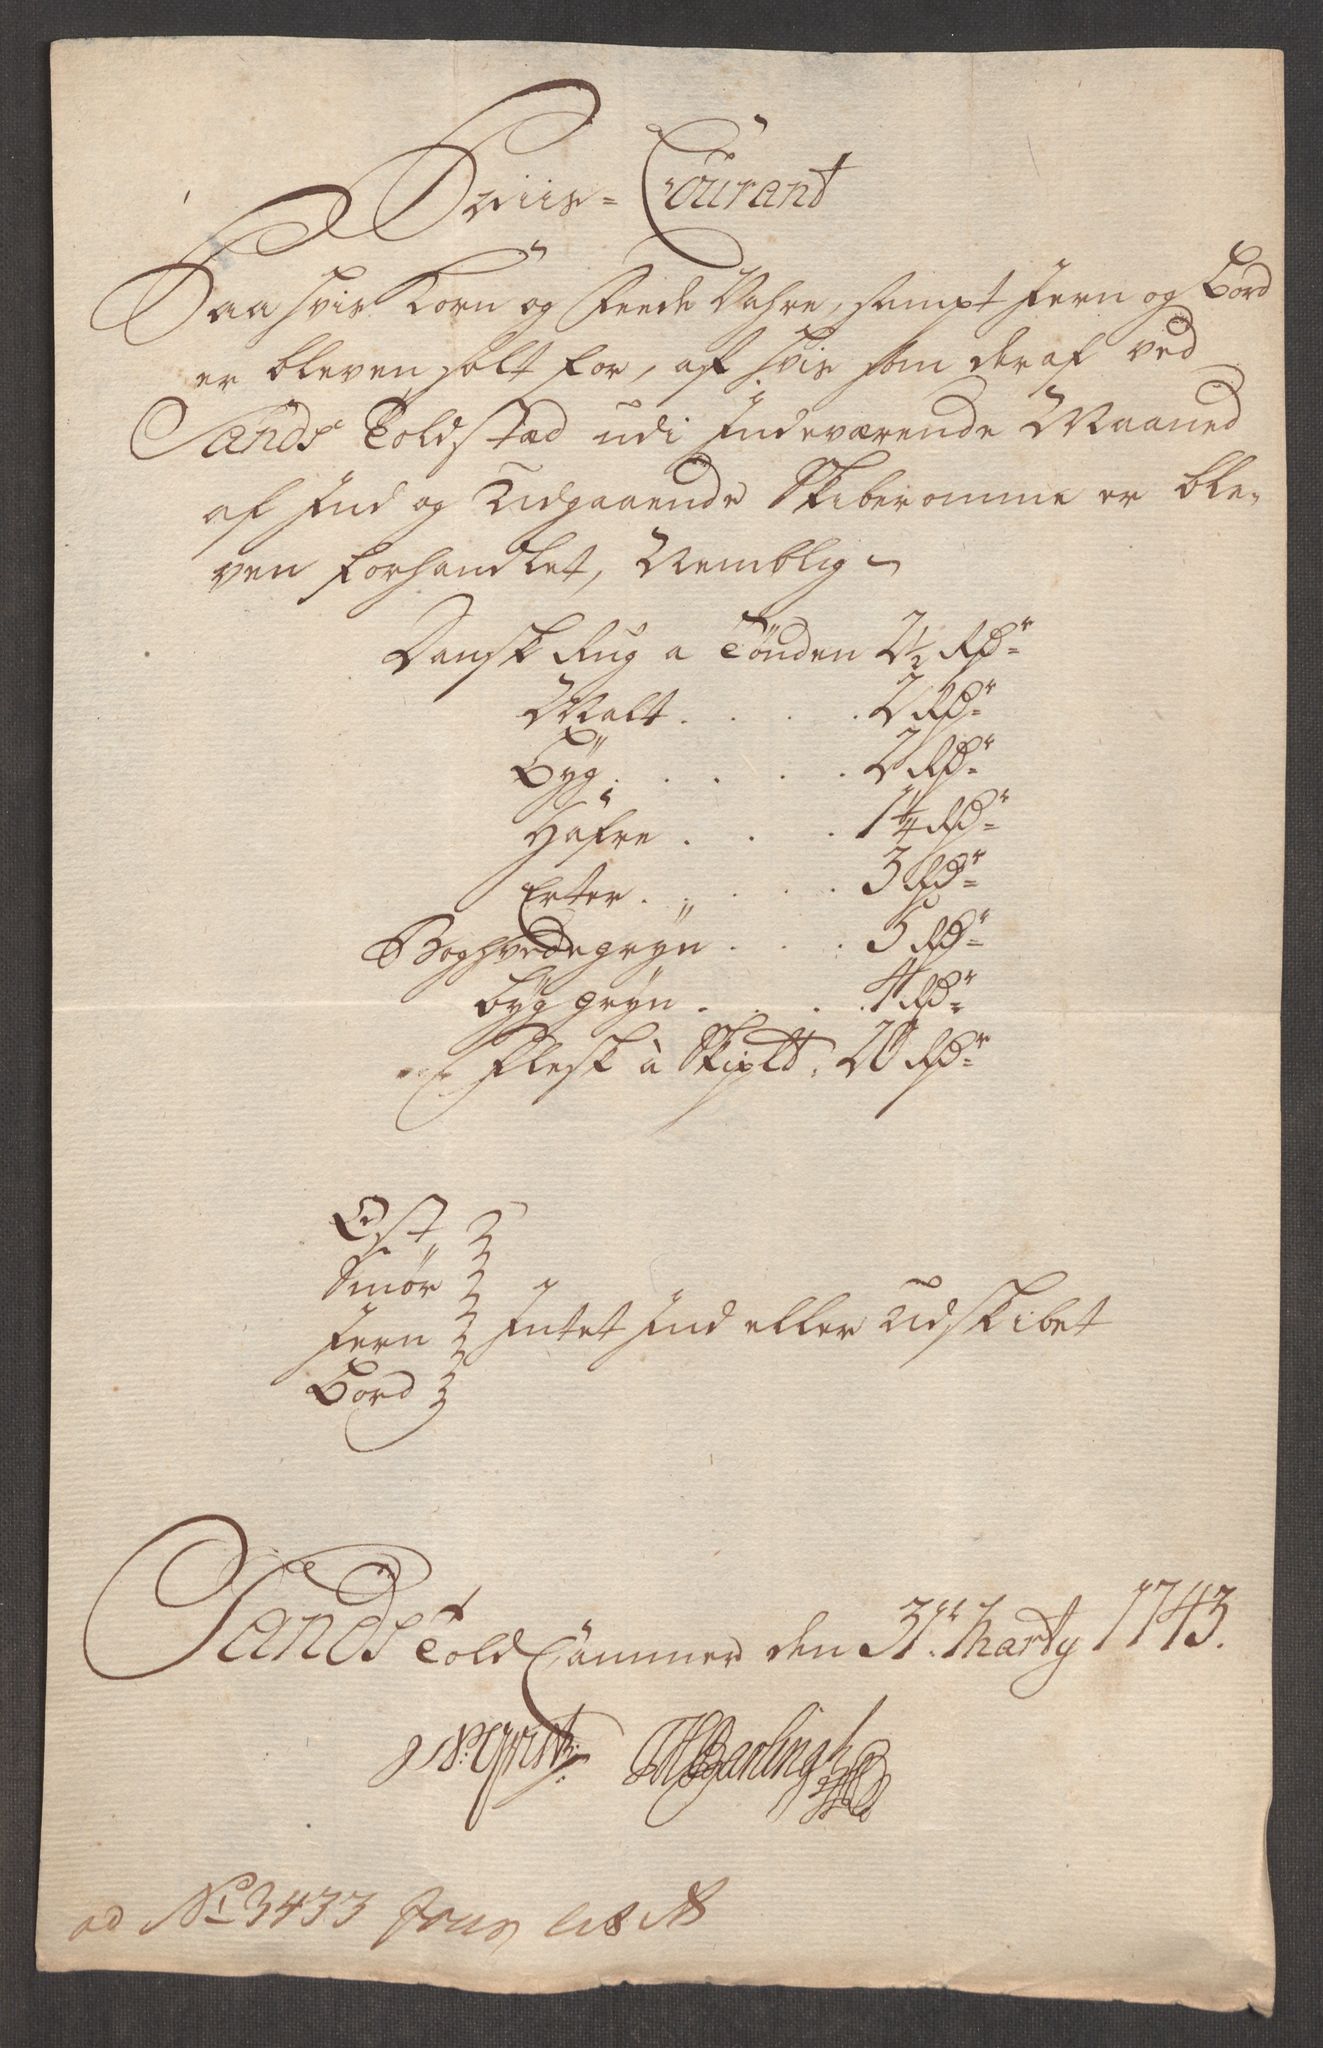 Priis-Courant
Paa hvis Korn og Feede Vahre, sampt Jern og Bord
er bleven holt for, af hvis som deraf ved
Sands Toldstad udi Indeværende Maaned
af Ind og Udgaaende Skiberomme er ble,
ven forhandlet, Nemblig
Dansk Rug a Tönden 2½ Rdr
Malt . . . . 2 Rdr
Byg . . . . . 2 Rdr
Hafre . . . 1¼ Rdr
Erter . . . . 3 Rdr
Boghvedegryn . . . 5 Rdr
byg gryn . . . . 4 Rdr
Flesk à Skipld. 20 Rdr
Ost
Smör
Jern Intet Ind eller Udskibet
Bord
Sands Told Cammer den 31te Marty 1743.
THBarlingh
ad No 3433 Jour lit